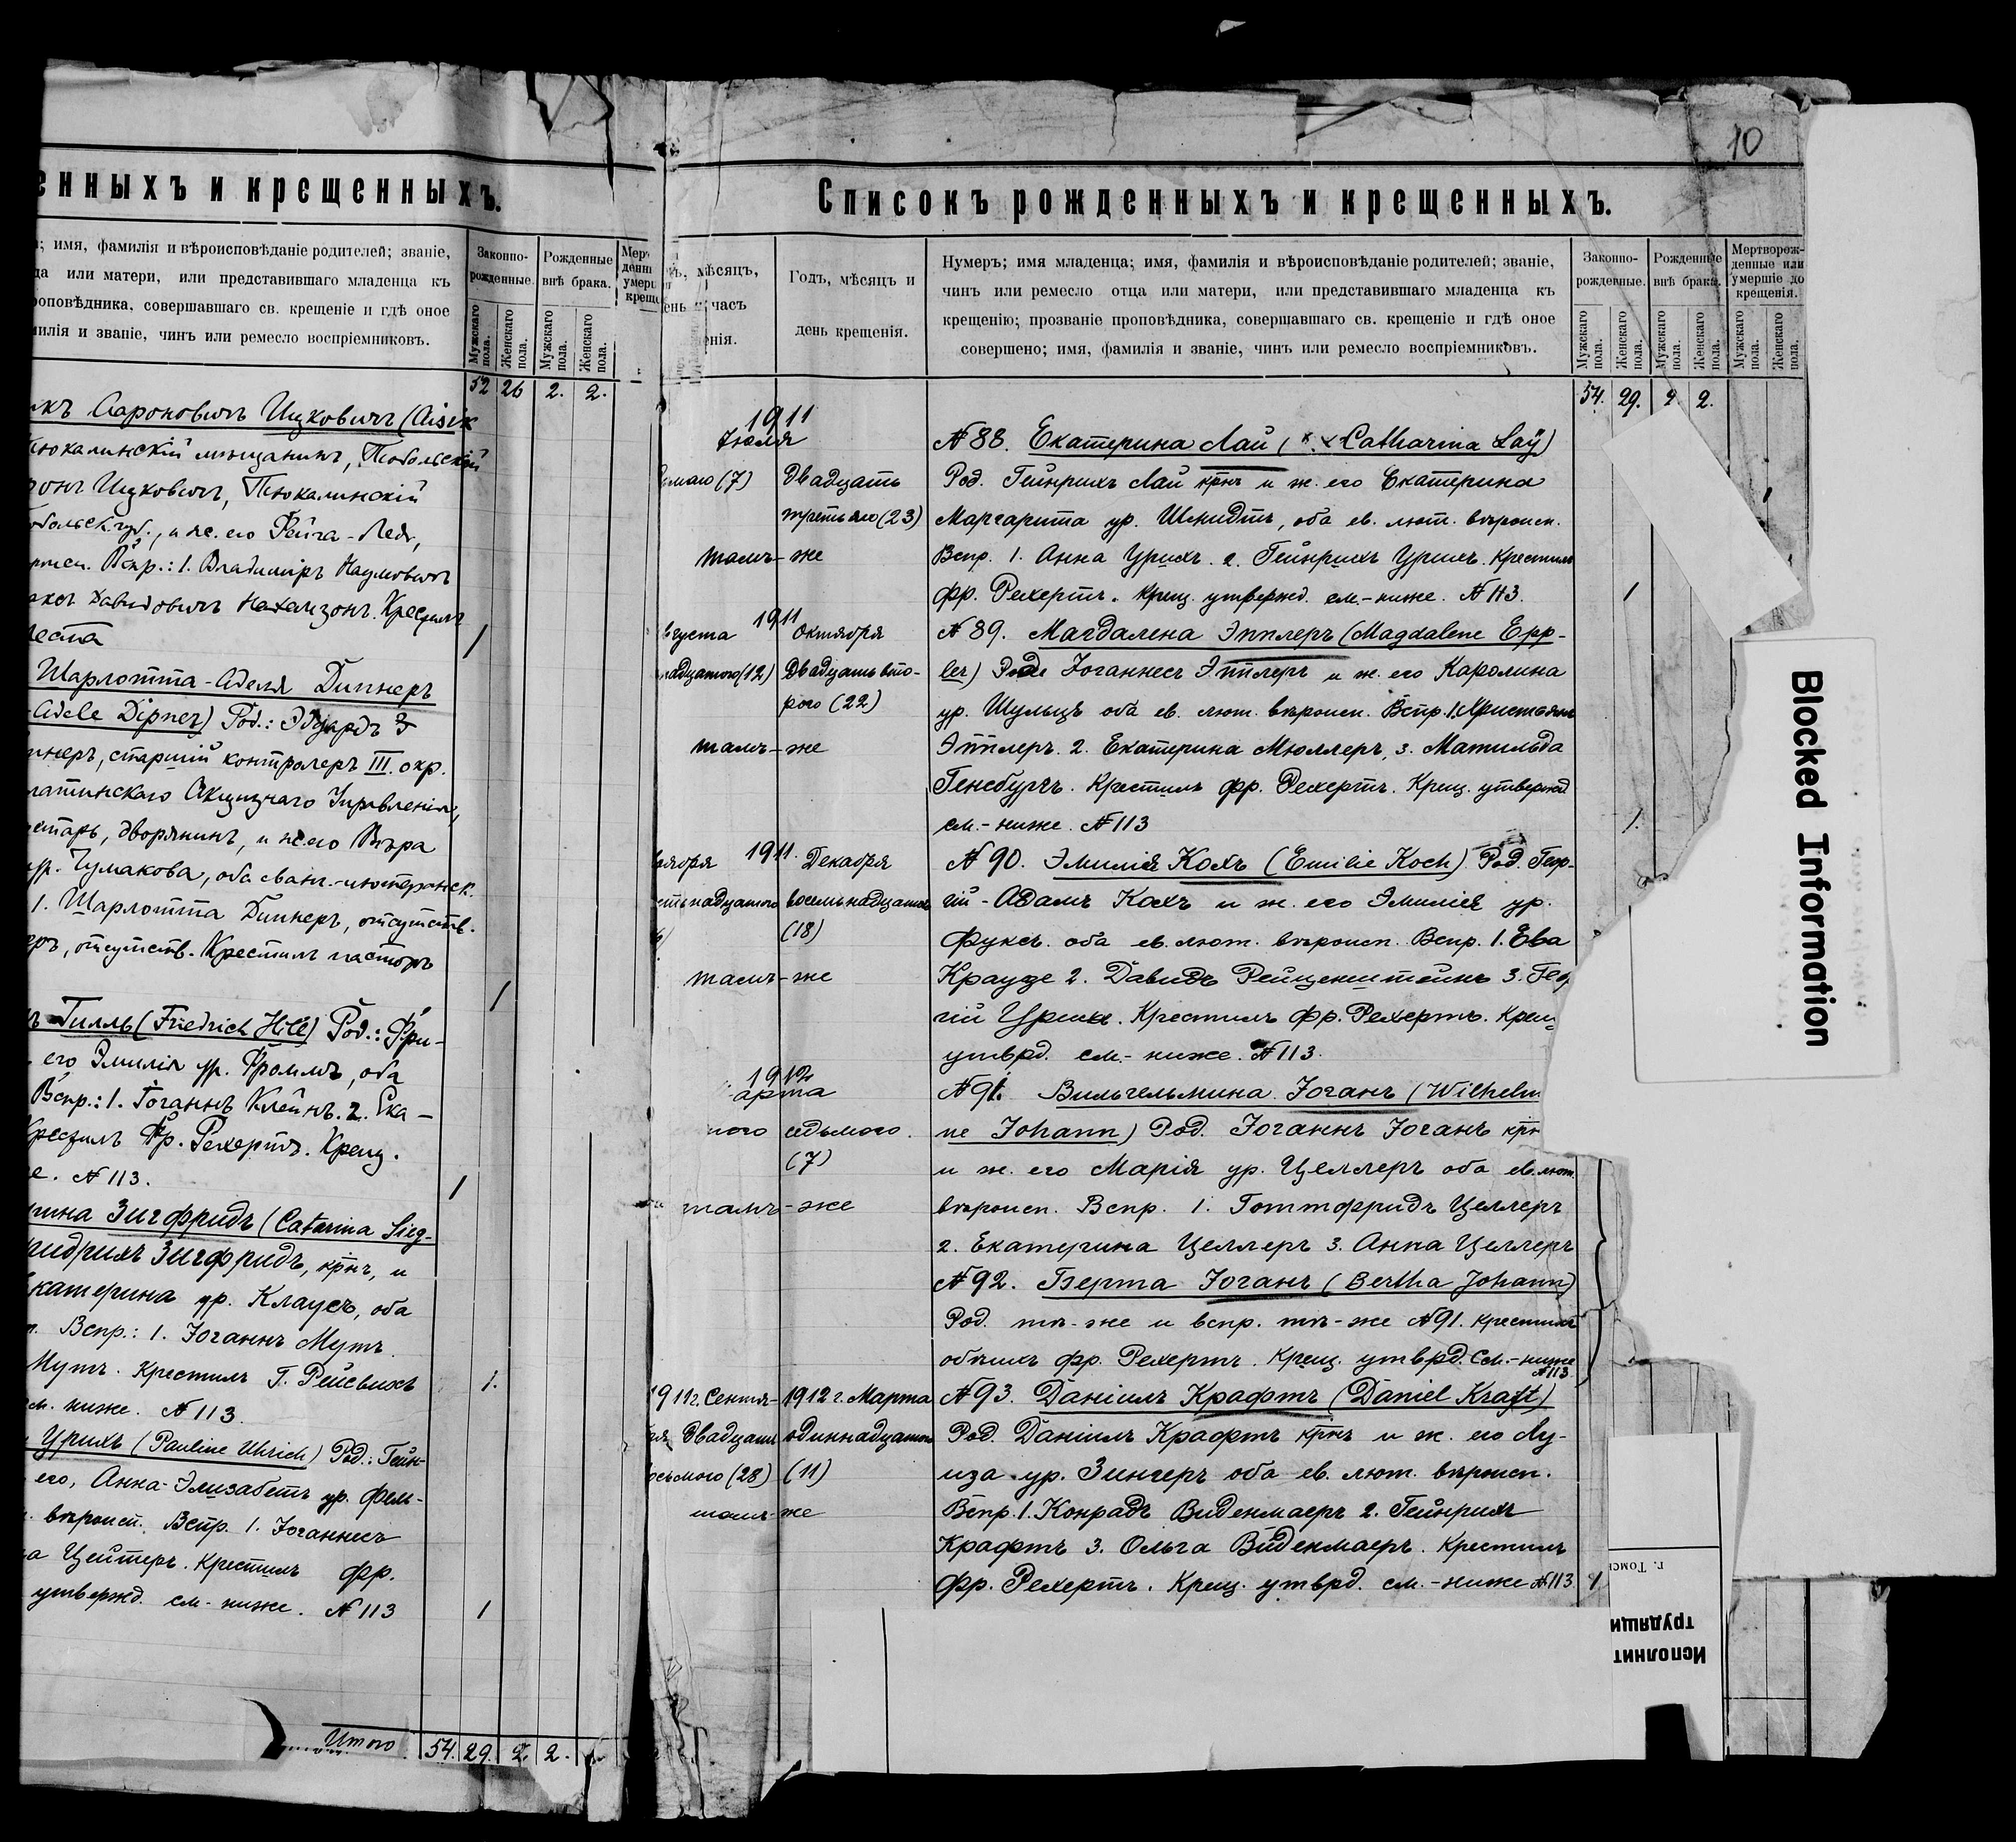 енныхъ и крещенныхъ.
; имя, фамилія и вѣроисповѣданіе родителей; званіе,
да или матери, или представившаго младенца къ
роповѣдника, совершавшаго св. крещеніе и гдѣ оное
милія и званіе, чинъ или ремесло воспріемниковъ.
Законно-рожденные.
Рожденные внѣ брака.
Мужскаго пола.
Женскаго пола.
Мужскаго пола.
Женскаго пола.
52 26 2. 2.
икъ Аароновичъ Ицковичъ (Aisik
Тюкалинскій мѣщанинъ, Тобольскій
ронъ Ицковичъ, Тюкалинскій
обольск. губ., и же. его Фейга-Лея,
Вспр.: 1. Владиміръ Наумовичъ
Давидовичъ Натансонъ. Крестилъ
1
Шарлотта-Аделя Дипнеръ
Adele Dipner) Род.: Эдуардъ
пнеръ, старшій контролеръ III. окр.
латинскаго Акцизнаго Управленія,
старь, дворянинъ, и ж. его Вѣра
ур. Чумакова, оба еванг.-лютеранск.
1. Шарлотта Дипнеръ, отсутств.
еръ, отсутств. Крестилъ пасторъ
1
ъ Гилль (Friedrich Hill) Род.: Фри-
его Эмилія ур. Фроммъ, оба
Вспр.: 1. Іоганнъ Клейнъ. 2. Ека-
Крестилъ Фр. Рехертъ. Крещ.
е. №113.
1
рина Зигфридъ (Catarina Sieg-
ридрихъ Зигфридъ, крнъ, и
катерина ур. Клаусъ, оба
Вспр.: 1. Іоганнъ Мутъ
Мутъ. Крестилъ Г. Рейсвихъ
1.
см. ниже. №113.
Урихъ (Pauline Uhrich) Род.: Гейн-
его, Анна-Элизабетъ ур. Фель-
вѣроисп. Вспр. 1. Іоганнесъ
а Цейтеръ. Крестилъ фр.
утвержд. см-ниже. №113
1
Итого 54. 29. 2. 2.
10
Списокъ рожденныхъ и крещенныхъ.
мѣсяцъ,
часъ
Годъ, мѣсяцъ и
день крещенія.
Нумеръ; имя младенца; имя, фамилія и вѣроисповѣданіе родителей; званіе,
чинъ или ремесло отца или матери, или представившаго младенца къ
крещенію; прозваніе проповѣдника, совершавшаго св. крещеніе и гдѣ оное
совершено; имя, фамилія и званіе, чинъ или ремесло воспріемниковъ.
Законно-рожденные.
Рожденные внѣ брака.
Мертворож-денные или умершіе до крещенія.
Мужскаго пола.
Женскаго пола.
Мужскаго пола.
Женскаго пола.
Мужскаго пола.
Женскаго пола.
54. 29. 2 2.
1911
Іюля
№88. Екатерина Лай (Catharina Laÿ)
(7) Двадцать Род. Гейнрихъ Лай крнъ и ж. его Екатерина
третьяго (23) Маргарита ур. Шмидтъ, оба ев. лют. вѣроисп.
тамъ-же Вспр. 1. Анна Урихъ. 2. Гейнрихъ Урихъ. Крестилъ
фр. Рехертъ. Крещ. утвержд. см.-ниже. №113. 1
1911
вгуста Октября №89. Магдалена Эпплеръ (Magdalene Epp-
надцатого (12) Двадцать вто- ler) Род. Іоганнесъ Эпплеръ и ж. его Каролина
рого (22) ур. Шульцъ оба ев. лют. вѣроисп. Вспр. 1. Христіанъ
тамъ-же Эпплеръ. 2. Екатерина Мюллеръ, 3. Матильда
Генсбургъ. Крестилъ фр. Рехертъ. Крещ. утвержд
см.-ниже. №113 1.
1911.
ября Декабря №90. Эмилія Кохъ (Emilie Koch) Род. Геор-
стнадцатого восемьнадцатого гій-Адамъ Кохъ и ж. его Эмилія ур.
(18) Фуксъ. оба ев. лют. вѣроисп. Вспр. 1. Ева
тамъ-же Краузе 2. Давидъ Рейценштейнъ 3. Геор
гій Урихъ. Крестилъ Фр. Рехертъ. Крещ
утврд. см.-ниже. №113.
1912
арта №91. Вильгельмина Іоганъ (Wilhelm
седьмого. ne Johann) Род. Іоганнъ Іоганъ крн
(7) и ж. его Марія ур. Целлеръ оба ев. лют.
тамъ-же вѣроисп. Вспр. 1. Готтфридъ Целлеръ
2. Екатерина Целлеръ 3. Анна Целлеръ
№92. Берта Іоганъ (Bertha Johann)
Род. тѣ-же и вспр. тѣ-же №91. Крестилъ
обѣихъ фр. Рехертъ. Крещ. утврд. См.-ниже
№113
1911 г. Сентя- 1912 г. Марта №93. Даніилъ Крафтъ (Daniel Kraft)
бря Двадцать одиннадцатого Род. Даніилъ Крафтъ крнъ и ж. его Лу-
осьмого (28) (11) иза ур. Зингеръ оба ев. лют. вѣроисп.
тамъ-же Вспр. 1. Конрадъ Виденмаеръ 2. Гейнрихъ
Крафтъ 3. Ольга Виденмаеръ. Крестилъ
фр. Рехертъ. Крещ. утврд. см.-ниже №113. 1
Blocked Information
г. Томс
Исполнит
трудящи